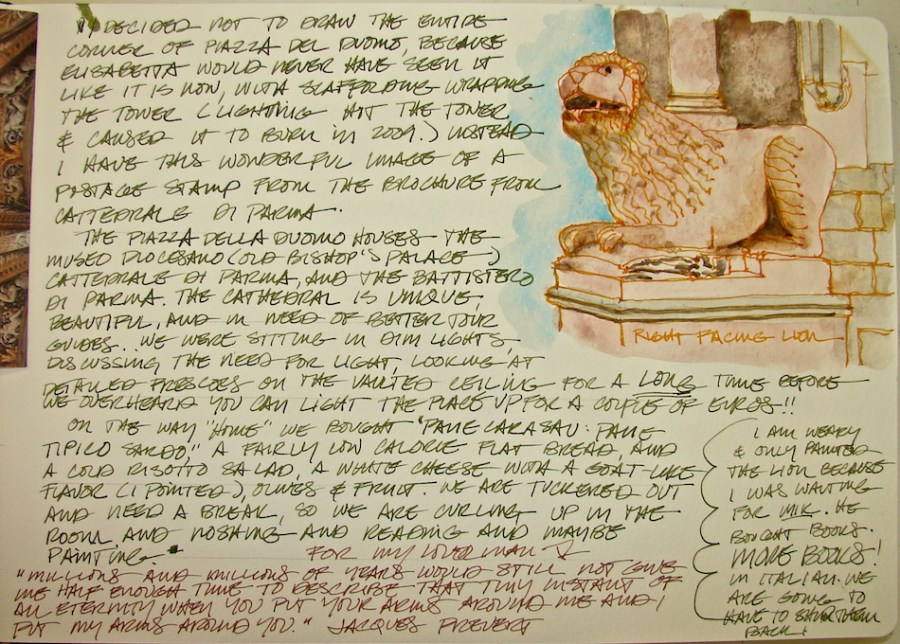 I DECIDED NOT TO DRAW THE ENTIRE
CORNER OF PIAZZA DEL DUOMO, BECAUSE
ELISABETTA WOULD NEVER HAVE SEEN IT
LIKE IT IS NOW, WITH SCAFFOLDING WRAPPING
THE TOWER (LIGHTNING HIT THE TOWER
& CAUSED IT TO BURN IN 2009.) INSTEAD
I HAVE THIS WONDERFUL IMAGE OF A
POSTAGE STAMP FROM THE BROCHURE FROM
CATTEDRALE DI PARMA.
THE PIAZZA DELLA DUOMO HOUSES THE
MUSEO DIOCESANO (OLD BISHOP'S PALACE)
CATTEDRALE DI PARMA, AND THE BATTISTERO
DI PARMA. THE CATHEDRAL IS UNIQUE,
BEAUTIFUL, AND IN NEED OF BETTER TOUR
GUIDES... WE WERE SITTING IN DIM LIGHTS
DISCUSSING THE NEED FOR LIGHT, LOOKING AT
DETAILED FRESCOES ON THE VAULTED CEILING FOR A LONG TIME BEFORE
WE OVERHEARD YOU CAN LIGHT THE PLACE UP FOR A COUPLE OF EUROS!!
ON THE WAY "HOME" WE BOUGHT "PANE CARASAU: PANE
TIPICO SARDO," A FAIRLY LOW CALORIE FLAT BREAD, AND
A COLD RISOTTO SALAD, A WHITE CHEESE WITH A GOAT-LIKE
FLAVOR (I POINTED), OLIVES & FRUIT. WE ARE TUCKERED OUT
AND NEED A BREAK, SO WE ARE CURLING UP IN THE
ROOM AND NOSHING AND READING AND MAYBE
PAINTING.
FOR MY LOVER MAN
"MILLIONS AND MILLIONS OF YEARS WOULD STILL NOT GIVE
ME HALF ENOUGH TIME TO DESCRIBE THAT TINY INSTANT OF
ALL ETERNITY WHEN YOU PUT YOUR ARMS AROUND ME AND I
PUT MY ARMS AROUND YOU." JACQUES PREVERT
RIGHT FACING LION
I AM WEARY
& ONLY PAINTED
THE LION BECAUSE
I WAS WAITING
FOR MIK. HE
BOUGHT BOOKS.
MORE BOOKS!
IN ITALIAN. WE
ARE GOING TO
HAVE TO SHIP THEM
BACK!